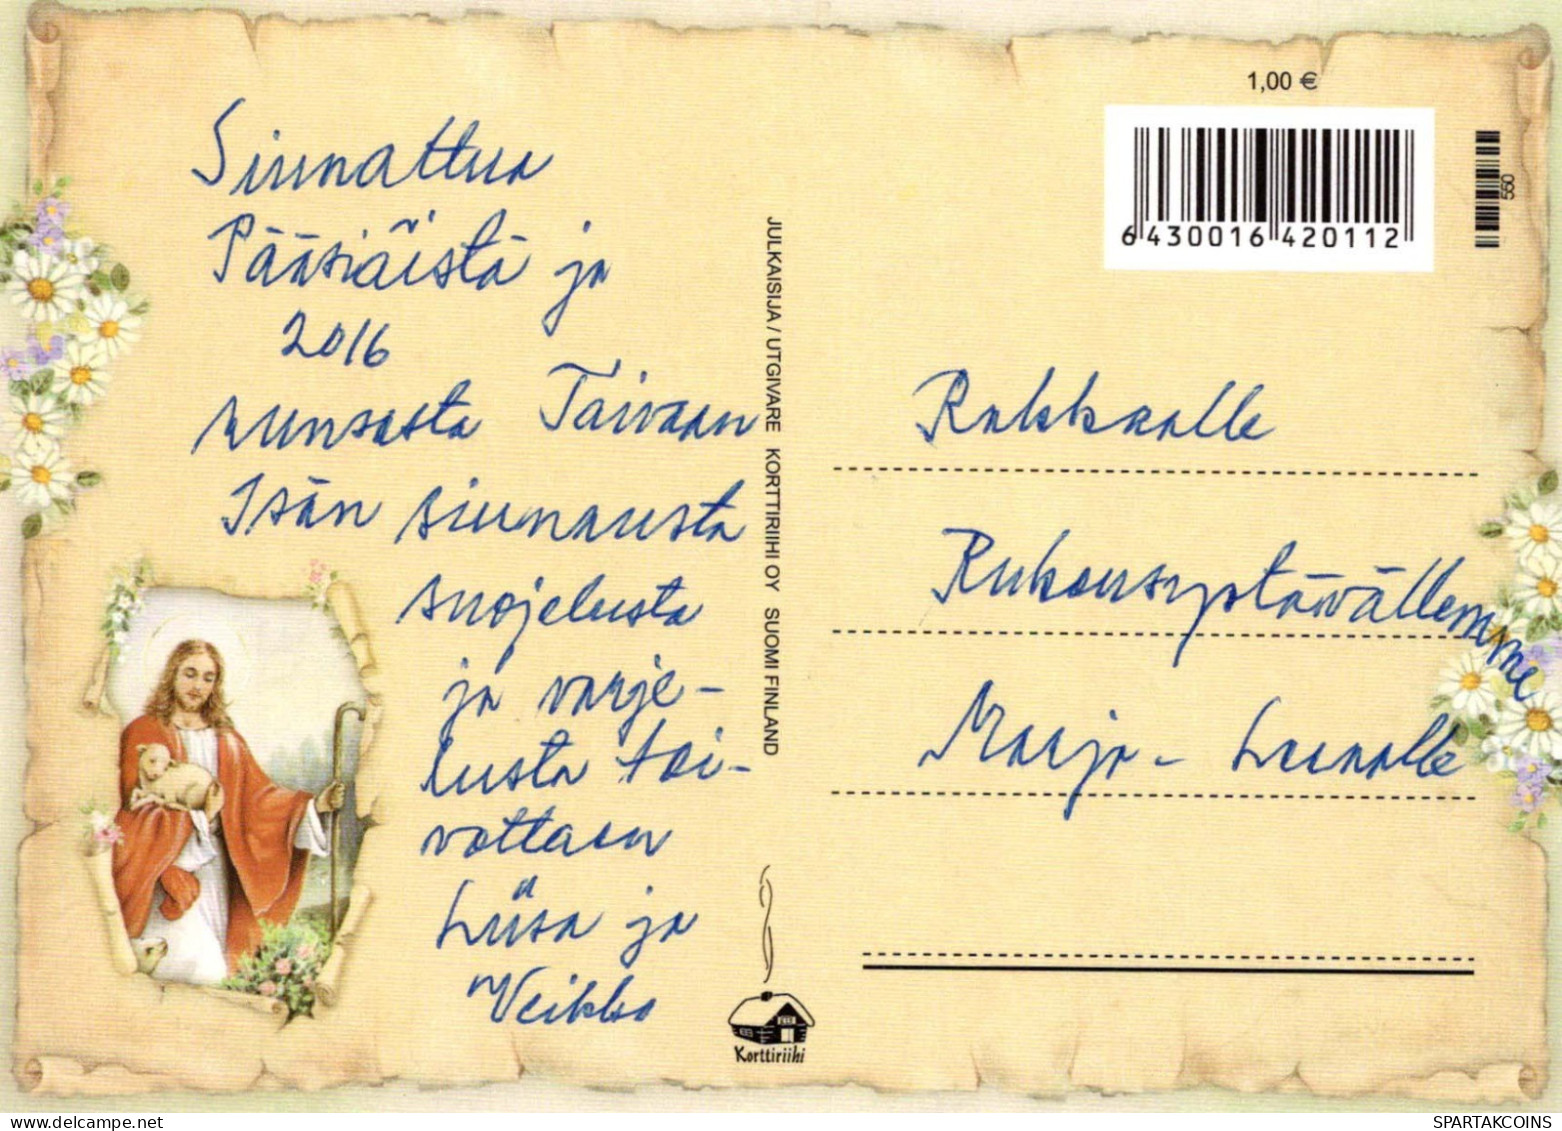 Siunattua
Pääsiäistä ja
2016
runsasta Taivaan
Isän siunausta
suojelusta
ja varje-
lusta toi-
vottaen
Liisa ja
Veikko
JULKAISIJA / UTGIVARE KORTTIRIIHI OY SUOMI FINLAND
Korttiriihi
1,00 €
6 430016 420112
560
Rakkaalle
Rukousystävällemme
Marja-Leenalle
SPARTAKCOINS